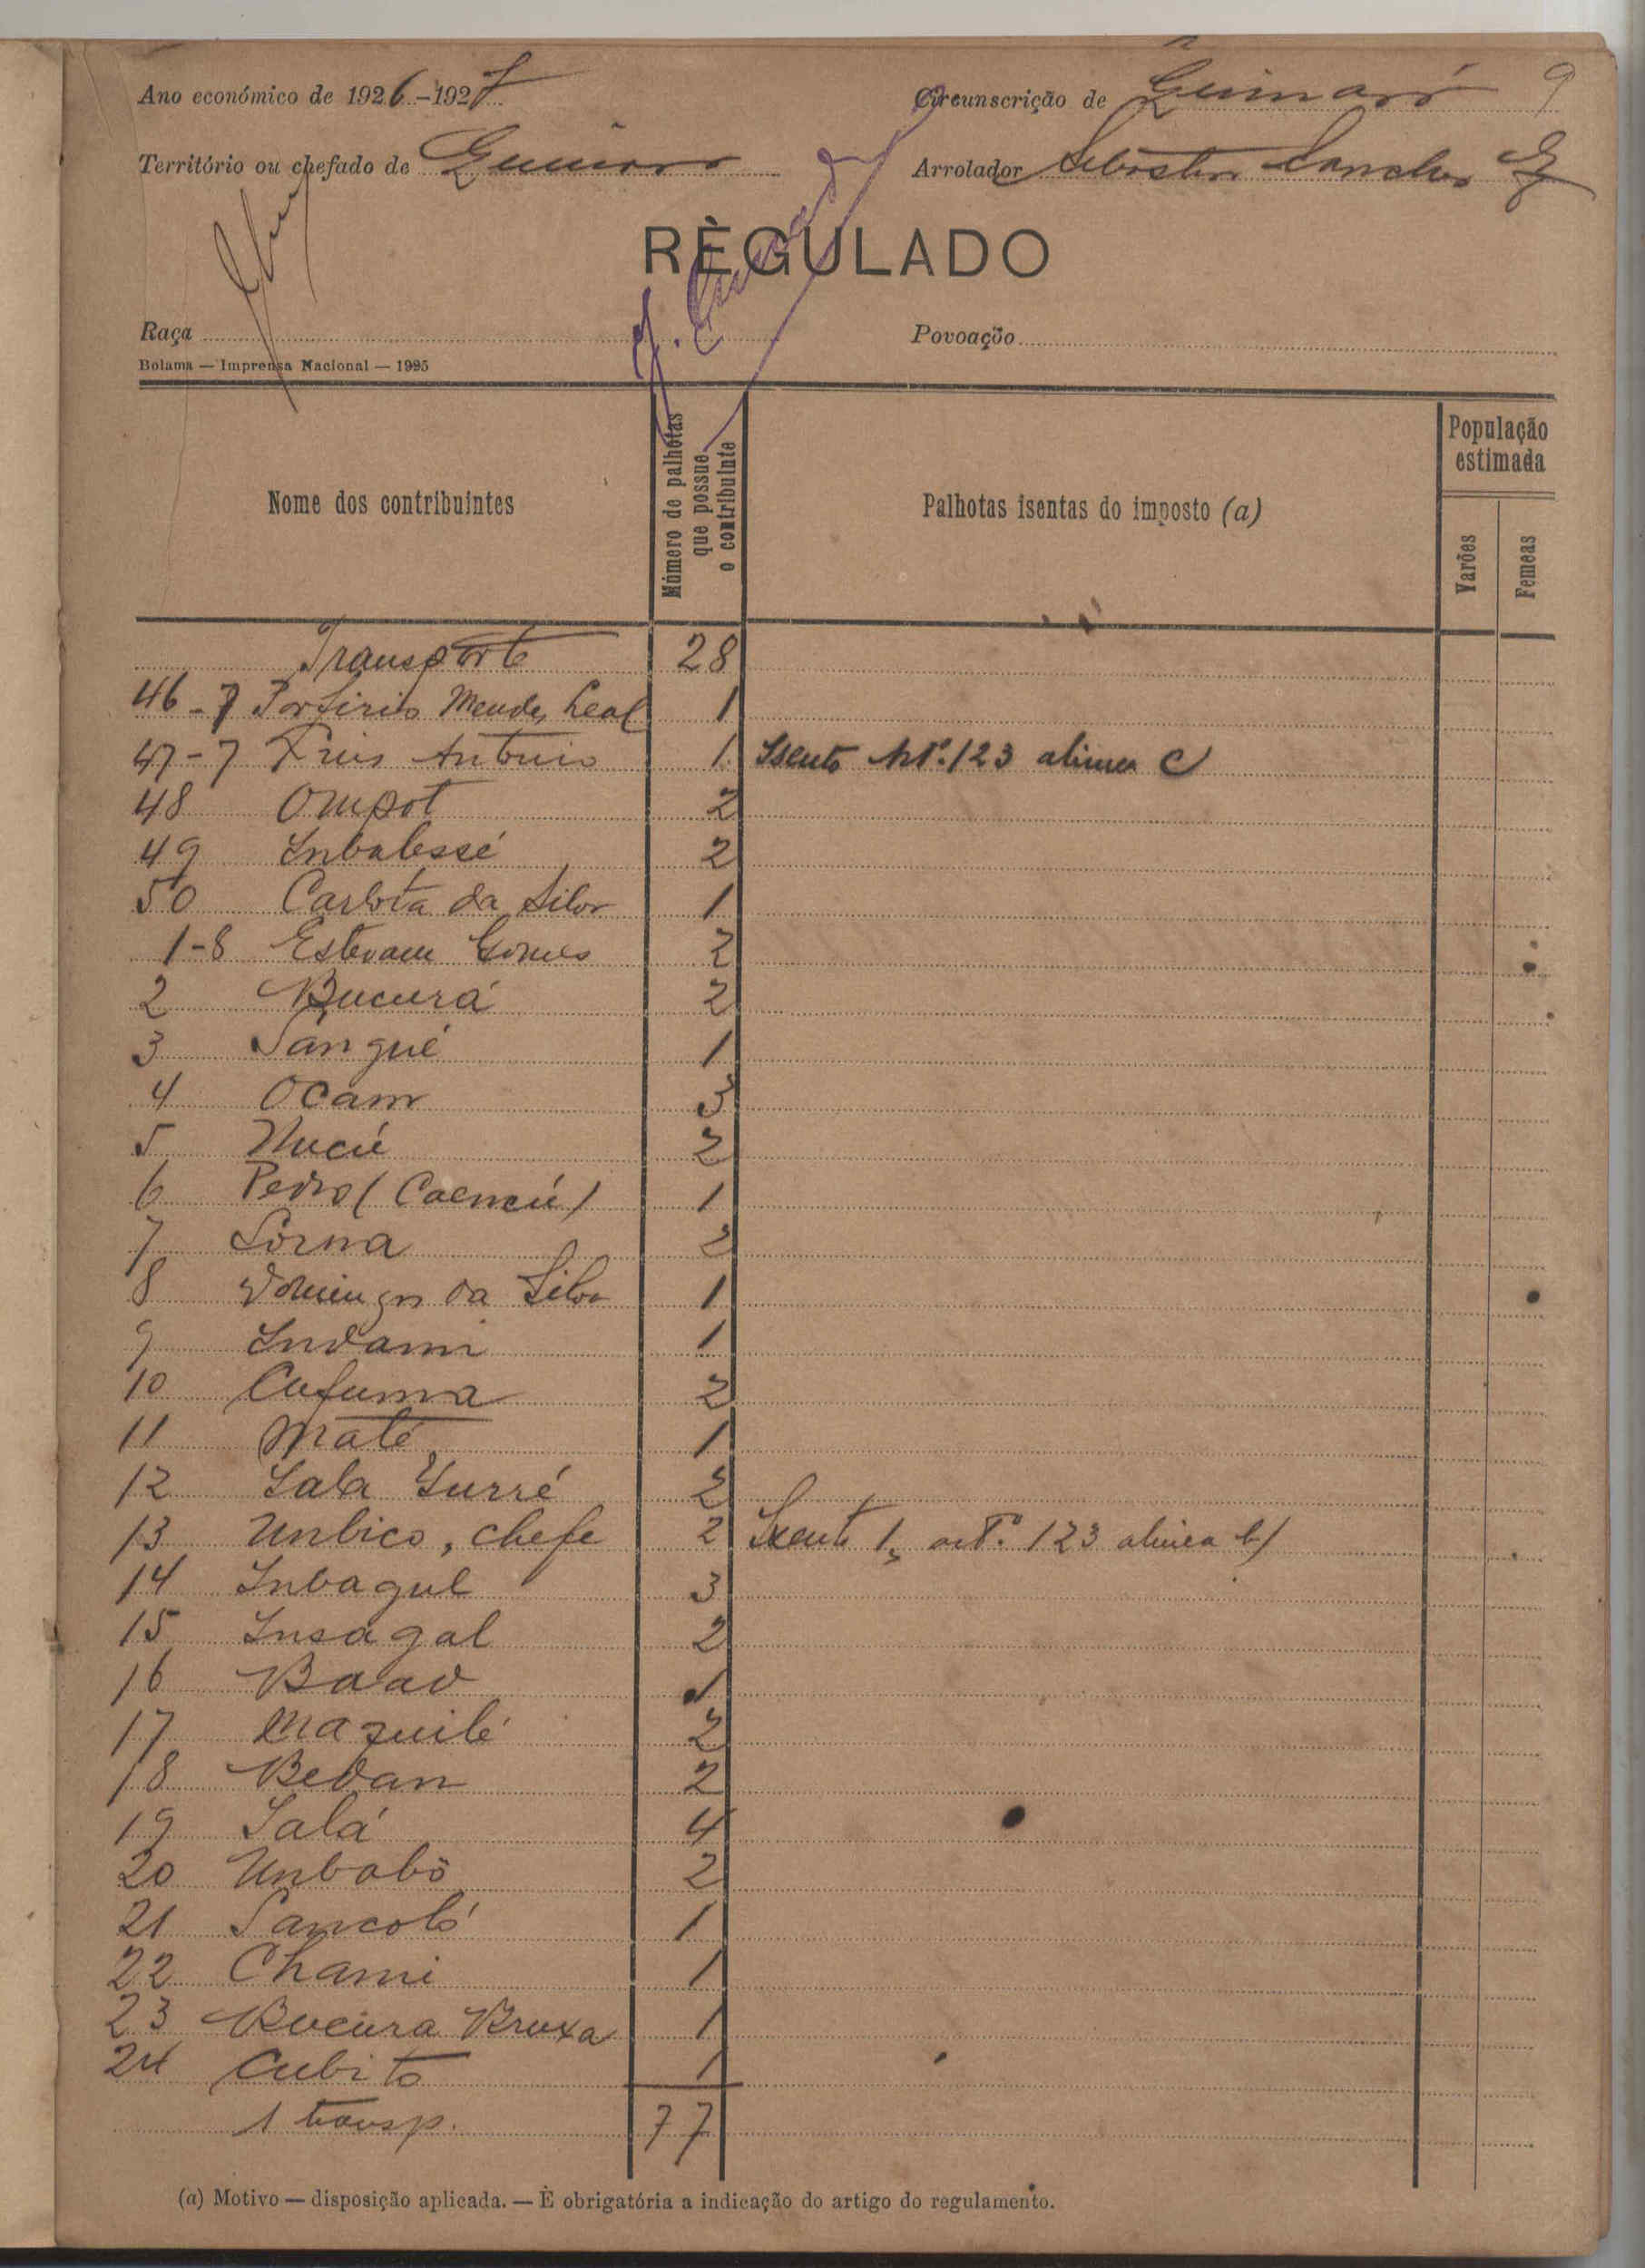 Ano económico de 1926-1927 Circunscrição de 9
Território ou chefado de Arrolador
RÈGULADO
Raça Povoação
Bolama — Imprensa Nacional — 1925
Nome dos contribuintes
Número de palhotas que possue o contribuinte
Palhotas isentas do imposto (a)
População estimada
Varões
Femeas
Transporte 28
46-7 Porfirio Mendes Leal 1
47-7 Antonio 1 Isento Artº. 123 alinea C
48 Ompot 2
49 Inbalessé 2
50 Carlota da Silva 1
1-8 Estevam Gomes 2
2 Bucurá 2
3 Sangué 1
4 Ocam 3
5 2
6 Pedro (Caencú) 1
7 Lorna 2
8 Domingos da Silva 1
9 Indami 1
10 Cufuma 2
11 Maté 1
12 Sala Yurré 2
13 Unbico, chefe 2 Isento 1, artº. 123 alinea b)
14 Inbagul 3
15 Insagal 2
16 Baad 1
17 Mazuilé 2
18 Bedan 2
19 Salá 4
20 Unbabô 2
21 Sancoló 1
22 Chami 1
23 Bucura Bruxa 1
24 Cubito 1
1 transp. 77
(a) Motivo — disposição aplicada. — È obrigatória a indicação do artigo do regulamento.